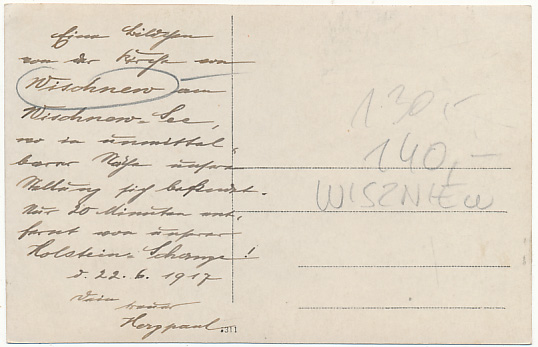 Eine Bildchen
von der Kirche von
Wischnew am
Wischnew-See,
wo in unmittel-
barer Nähe unsere
Stellung sich befindet.
Nur 20 Minuten ent-
fernt von unserer
Holstein-Schanze!
d. 22.6.1917
Dein
treuer
Herzpaul
130,-
140,-
WISZNIEW
311